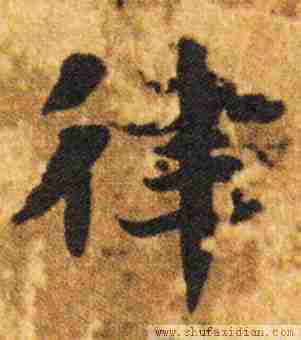 律
www.shufaxidian.com